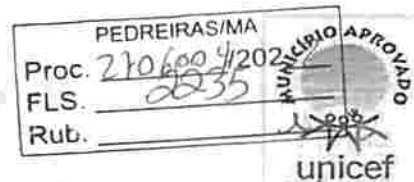 PEDREIRAS/MA
Proc. 2706001/202
FLS. 2235
Rub.
MUNICÍPIO APROVADO
unicef